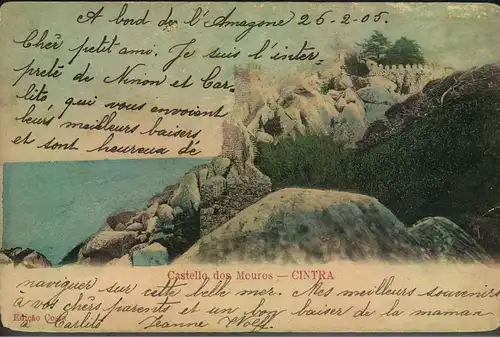 A bord de l'Amazone 25-2-05.
Chèr petit ami. Je suis l'inter-
prète de Ninon et Car-
lito qui vous envoient
leurs meilleurs baisers
et sont heureux de
Castello dos Mouros — CINTRA
naviguer sur cette belle mer. Mes meilleurs souvenirs
à vos chèrs parents et un bon baiser de la maman
à Carlito Jeanne Wolff.
Edição Costa